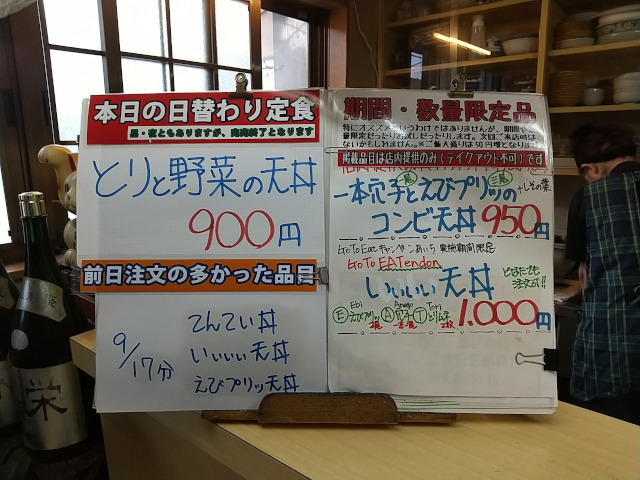 本日の日替わり定食
昼・夜ともありますが、完売終了となります
とりと野菜の天丼
900円
前日注文の多かった品目
9/17分
てんてい丼
いぃぃぃ天丼
えびプリッ天丼
期間・数量限定品
特にオススメというわけではありませんが、期間や数
量限定だったりお試しだったりします。次回ご来店時は
ないかもしれません。※ご飯大盛りは50円増となります
掲載品目は店内提供のみ(テイクアウト不可)です
一本穴子とえびプリッの
+しその葉
コンビ天丼 950円
GoToEatキャンペーンあいち 実施期間限定
GoTo EATendon
いぃぃぃ天丼
どなたでも
注文OK!!
Ebi Anago Tori
E えびプリッ A 穴子 T とりムネ
2尾 一本 2枚
1,000円
栄